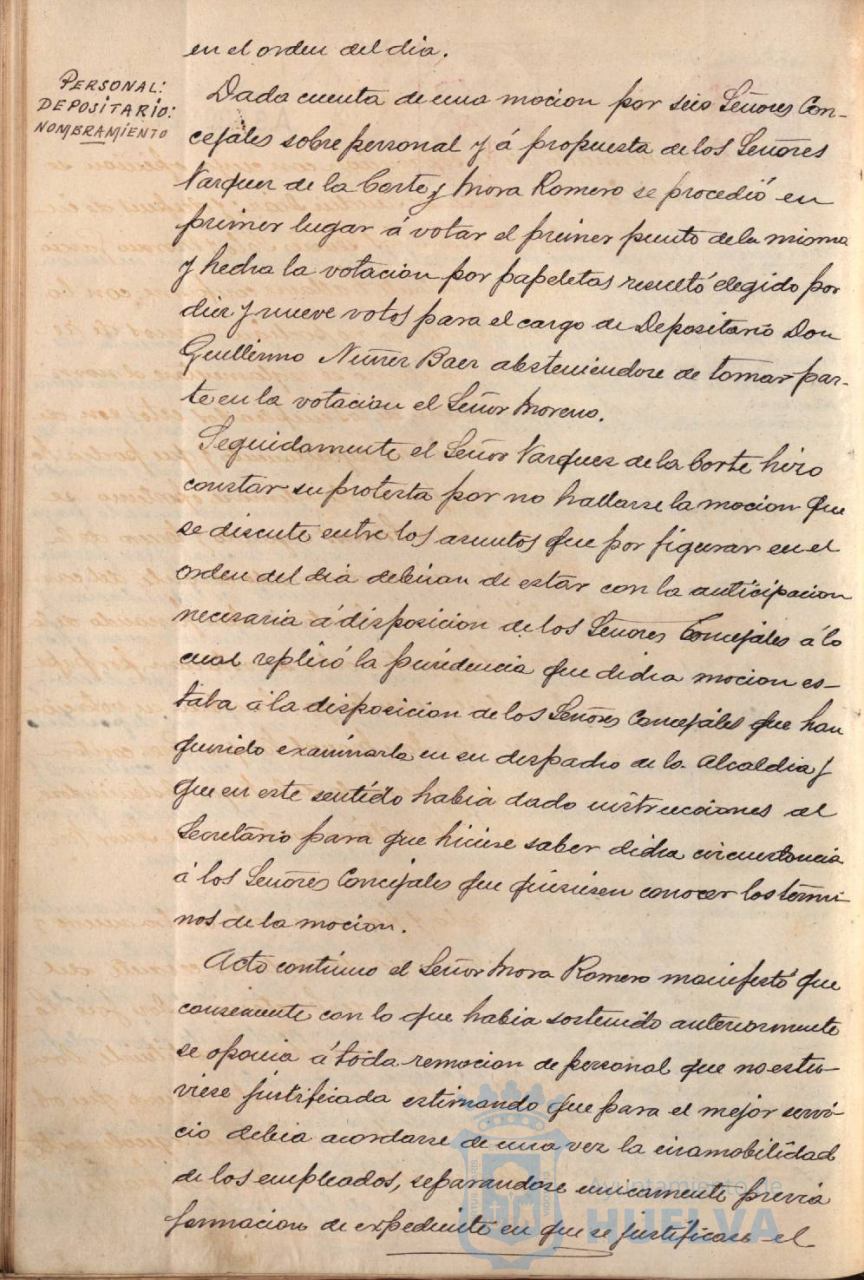 en el orden del dia.
PERSONAL:
DEPOSITARIO:
NOMBRAMIENTO
Dada cuenta de una mocion por seis Señores Con-
cejales sobre personal y á propuesta de los Señores
Vazquez de la Corte y Mora Romero se procedió en
primer lugar á votar el primer punto de la misma
y hecha la votacion por papeletas resultó elegido por
diez y nueve votos para el cargo de Depositario Don
Guillermo Nuñez Baer absteniendose de tomar par-
te en la votacion el Señor Moreno.
Seguidamente el Señor Vazquez de la Corte hizo
constar su protesta por no hallarse la mocion que
se discute entre los asuntos que por figurar en el
orden del dia debieran de estar con la anticipacion
necesaria á disposicion de los Señores Concejales á lo
cual replicó la presidencia que dicha mocion es-
taba á la disposicion de los Señores Concejales que han
querido examinarla en su despacho de la Alcaldia y
que en este sentido habia dado instrucciones al
Secretario para que hiciese saber dicha circunstancia
á los Señores Concejales que quisiesen conocer los térmi-
nos de la mocion.
Acto continuo el Señor Mora Romero manifestó que
consecuente con lo que habia sostenido anteriormente
se oponia á toda remocion de personal que no estu-
viese justificada estimando que para el mejor servi-
cio debia acordarse de una vez la inamobilidad
de los empleados, separandose unicamente previa
formacion de expediente en que se justificase el
Ayuntamiento de
HUELVA